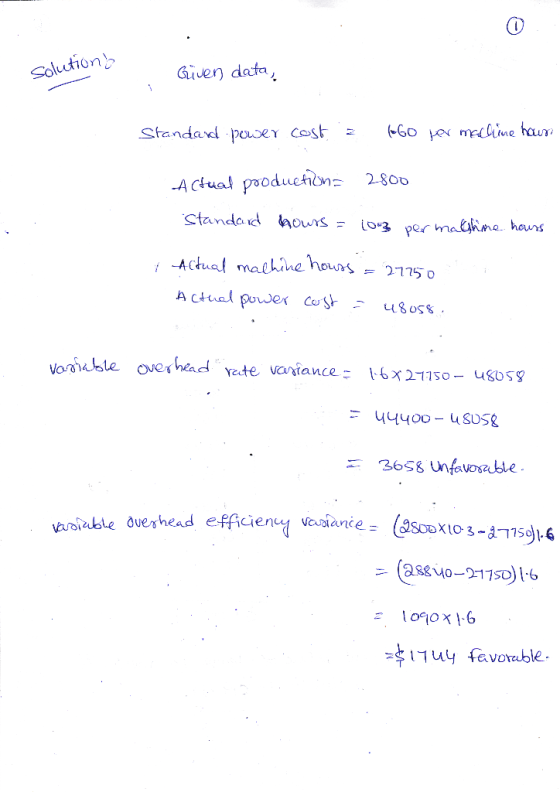 1
Solution:
Given data,
Standard power cost = 1.60 per machine hour
Actual production = 2800
Standard hours = 10.3 per machine hours
Actual machine hours = 27750
Actual power cost = 48058.
variable overhead rate variance = 1.6 x 27750 - 48058
= 44400 - 48058
= 3658 Unfavorable.
variable overhead efficiency variance = (2800x10.3-27750)1.6
= (28840-27750)1.6
= 1090 x 1.6
= $1744 favorable.